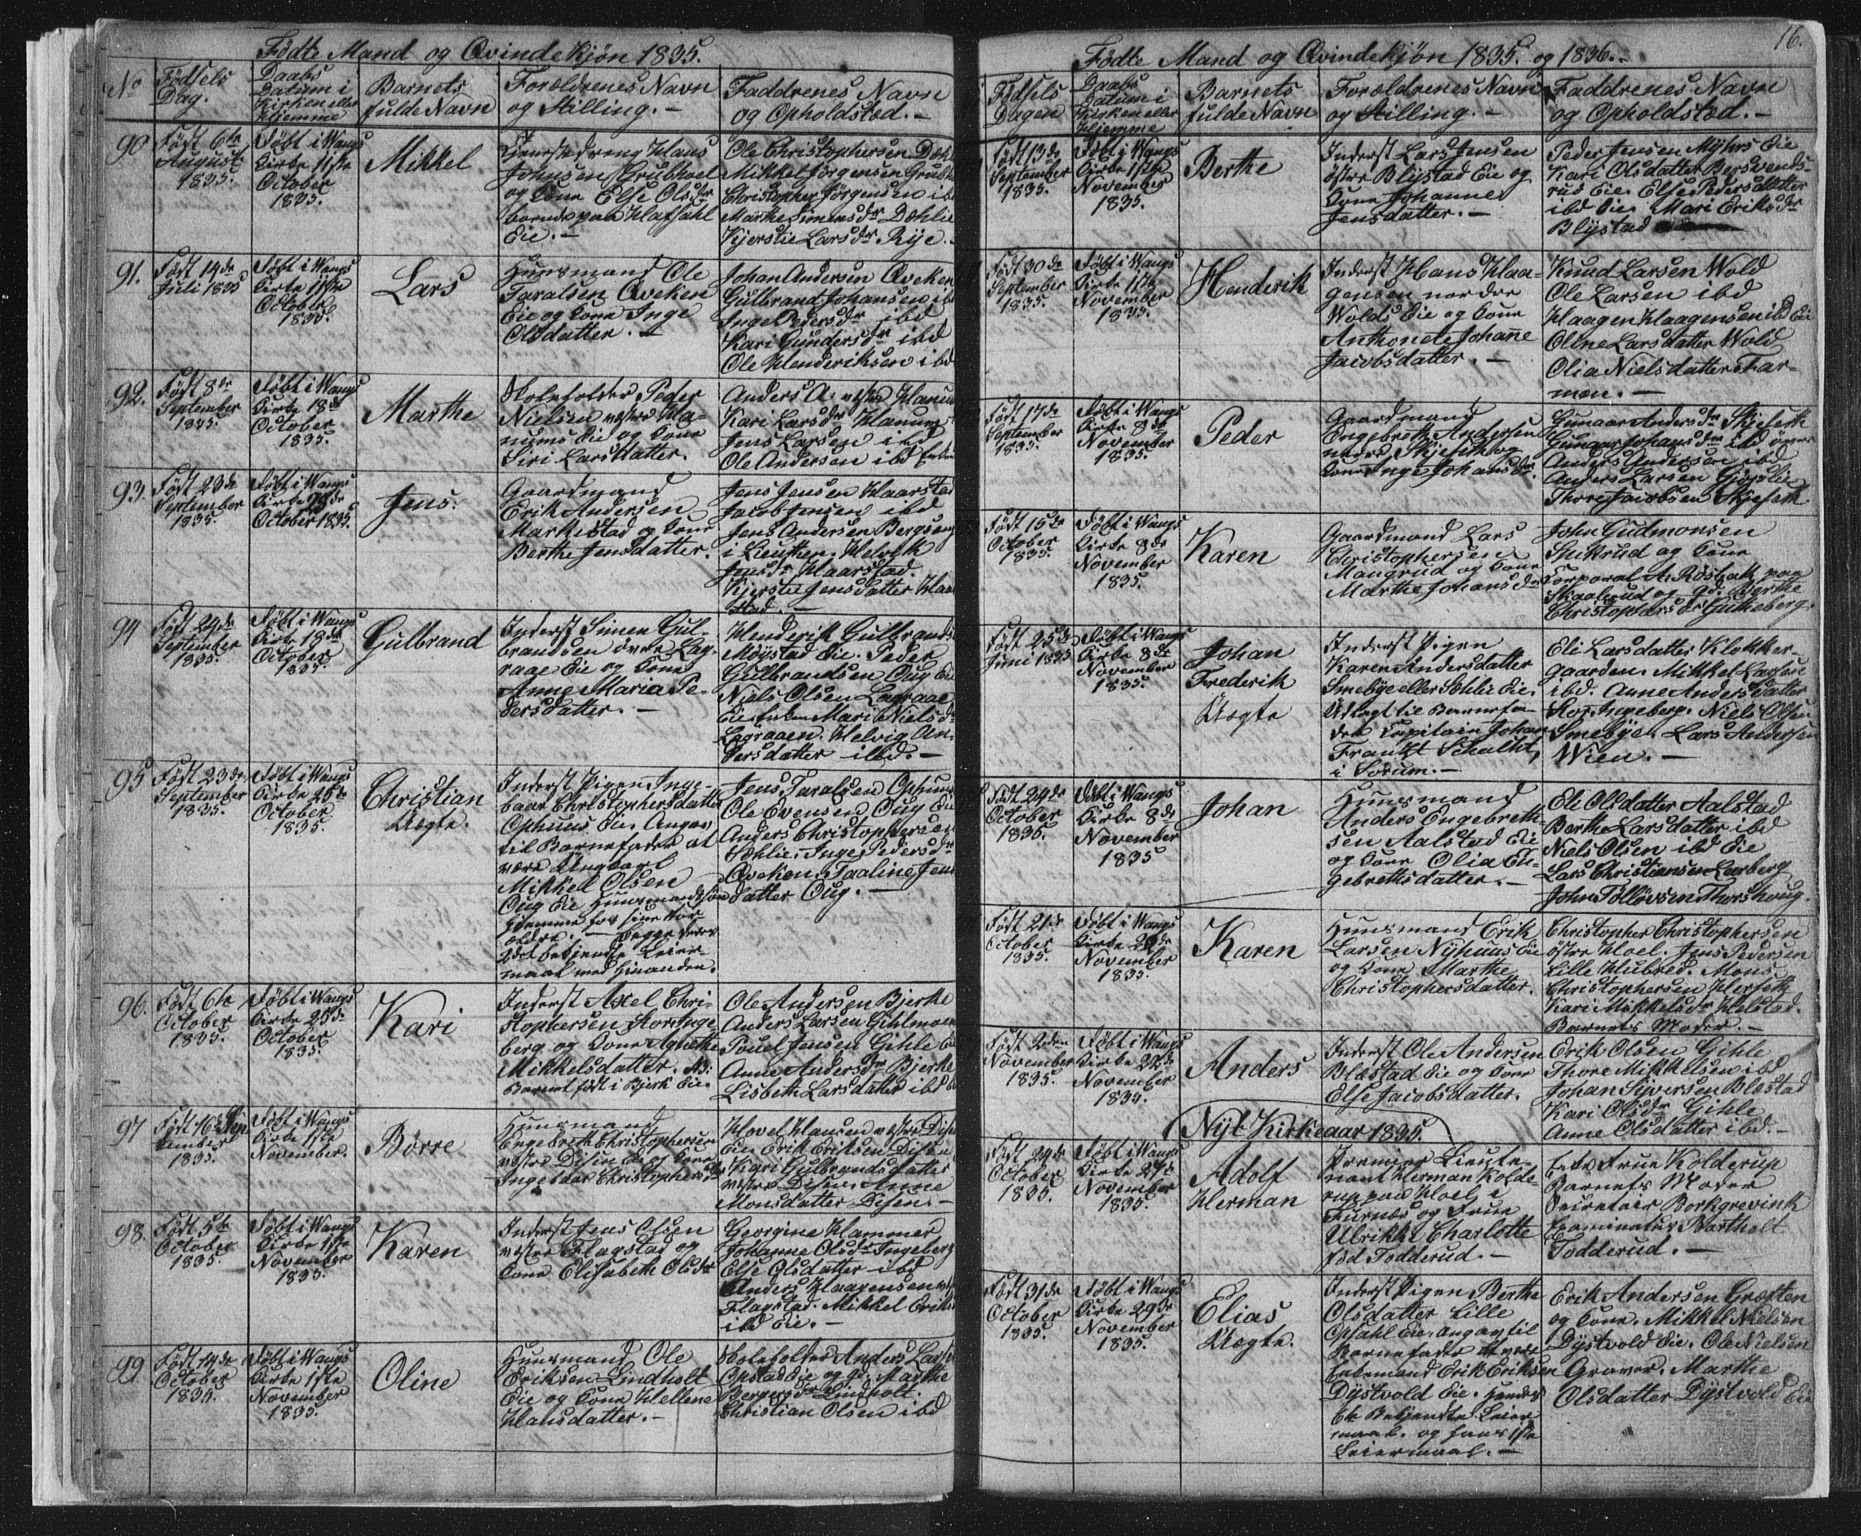 Fødte Mand og Qvindekjøn 1835.
No
Fødsels Dag.
Daabs Datum i Kirken eller Hjemme
Barnets fulde Navn
Forældrenes Navn og Stilling.
Faddrenes Navn og Opholdsted.
90
Født 6te August 1835.
Døbt i Wangs Kirke 11te October 1835.
Mikkel
Johnsen
og Kone Else Olsdr
Eie.
Ole Christophersen
Mikkel Jørgensen
Christopher Jørgensen ibd
Marthe Simensdr Dæhlie
Kjerstie Larsdr Rye.
91.
Født 14de Juli 1835
Døbt i Wangs Kirke 11te October 1835.
Lars
Huusmand Ole
Taralsen Qveken
Eie og Kone Inge
Olsdatter.
Johan Andersen Qveken
Gulbrand Johansen ibd
Inge Pedersdr ibd
Kari Gundersdr ibd
Ole Henderiksen ibd
92.
Født 8de September 1835.
Døbt i Wangs Kirke 18de October 1835.
Marthe
Peder
Nielsen vestre Ha-
nums Eie og Kone
Siri Larsdatter.
Anders A. vestre Hanum
Kari Larsdr Hanum
Jens Larsen ibd
Ole Andersen ibd
93.
Født 23de September 1835.
Døbt i Wangs Kirke
October 1835.
Jens.
Gaardmand
Erik Andersen
Markestad og Kone
Berthe Jensdatter.
Jens Jensen Haarstad
Jacob Jensen ibd
Jens Andersen
Helvig
Jensdr Haarstad.
Kjerstie Jensdatter Haar-
stad.
94
Født 24de September 1835.
Døbt i Wangs Kirke 18de October 1835.
Gulbrand
Inderst Simen Gul-
brandsen øvre Lag-
raae Eie og Kone
Anne Maria Pe-
dersdatter.
Henderik Gulbrands
Møystad Eie. Peder
Gulbrandsen Oug Eie
Niels Olsen Lagraae
Eie. Enken Mari Nielsdr
Lagraaen. Helvig An-
dersdatter ibd.
95
Født 23de September 1835.
Døbt i Wangs Kirke 25de October 1835.
Christian
Uægte.
Inderst Pigen Inge-
baar Christophersdatter
Ophuus Eie. Angav
til Barnefader at
være Ungkarl
Mikkel Olsen
Oug Eie Huusmandssøn
Jens Taralsen Ophuus
Ole Evensen Oug Eie
Anders Christophersen
Sæhlie. Inge Pedersdr
Qveken. Paaline Jens
datter Oug.
96.
Født 6te October 1835.
Døbt i Wangs Kirke 25de October 1835.
Kari
Inderst Axel Chri-
stophersen Stor Inge-
berg og Kone Agnethe
Mikkelsdatter.
Barnet født i Bjerk Eie.
Ole Andersen Bjerke
Anders Larsen Gihlmoen
Pouel Jensen Gihle
Anne Andersdr Bjerke
Lisbeth Larsdatter ibd
97
Født 16de Sep-
tember 1835.
Døbt i Wangs Kirke 1ste November.
Børre
Huusmand
Engebreth Christophersen
vestre Disen Eie og Kone
Ingebaar Christophersdr
Hovel Hansen vestre Disen
Eie. Erik Eriksen Disen
Kari Gulbrandsdatter
vestre Disen. Anne
Monsdatter Disen.
98.
Født 5te October 1835.
Døbt i Wangs Kirke 1ste November 1835.
Karen
Inderst Jens Olsen
vestre Flagstad og
Kone Elisabeth Olsdr
Georgine Hammer
Johanne Olsdr Ingeberg
Else Olsdatter ibd
Anders Haagensen
Flagstad. Mikkel Erik
ibd Eie.
99
Født 14de October 1835.
Døbt i Wangs Kirke 1ste November 1835.
Oline
Huusmand Ole
Eriksen Lindholt
Eie og Kone Hellene
Hansdatter.
Anders Lars
Opstad Eie og G. Marthe
Lindholt.
Christian Olsen ibd
16.
Fødte Mand og Qvindekjøn 1835. og 1836.
Fødsels Dagen
Daabs Datum i Kirken eller Hjemme
Barnets fulde Navn
Forældrenes Navn og Stilling.
Faddrenes Navn og Opholdsted.
Født 13de September 1835.
Døbt i Wangs Kirke 1ste November 1835.
Berthe
Inderst Lars Jensen
østre Blystad Eie og
Kone Johanne
Jensdatter.
Peder Jensen Myhrs Eie
Kari Olsdatter Bersvends-
rud Eie. Else Pedersdatter
ibd Eie. Mari Eriksdr
Blystad
Født 30de September 1835.
Døbt i Wangs Kirke 1ste November 1835.
Henderik
Inderst Hans Haa-
gensen nordre
Wolds Eie og Kone
Anthonete Johanne
Jacobsdatter.
Knud Larsen Wold
Ole Larsen ibd
Haagen Haagensen ibd Eie
Oline Larsdatter Wold
Olia Nielsdatter Far-
men.
Født 17de September 1835.
Døbt i Wangs Kirke 8de November 1835.
Peder
Gaardmand
Engebreth Andersen
nedre Skjeset og
Kone Inge Johansdr
Gunaar Andersdr Skjeset
Gunaar Johansdr ibd øvre
Anders Andersen ibd
Anders Larsen Gjøstie
Thore Jacobsen Skjeset
Født 15de October 1835.
Døbt i Wangs Kirke 8de November 1835.
Karen
Gaardmand Lars
Christophersen
Mangrud og Kone
Marthe Johansdr
John Gudmonsen
og Kone
Corporal A. Røsbak paa
Skaalrud og G. Berthe
Christophersdr Gutheberg.
Født 25de Juni 1835
Døbt i Wangs Kirke 8de November 1835.
Johan
Frederik
Uægte
Inderst Pigen
Karen Andersdatter
Smebye eller Sæhlie Eie.
Udlagt til Barnefa-
der Capitain Johan
Frantz Schultz
i Sørum.
Eli Larsdatter Klokker-
gaarden. Mikkel Larsen
ibd. Anne Andersdatter
Stor Ingeberg. Niels Olsen
Smebye. Lars Andersen
Wien.
Født 24de October 1835.
Døbt i Wangs Kirke 8de November 1835
Johan
Huusmand
Anders Engebreth-
sen Aalstad Eie
og Kone Olia En-
gebrethsdatter.
Eli Olsdatter Aalstad
Berthe Larsdatter ibd
Niels Olsen ibd Eie
Lars Christiansen Lasberg
John Tolløvsen Thorshoug.
Født 21de October 1835.
Døbt i Wangs Kirke 22de November 1835.
Karen
Huusmand Erik
Larsen Nyhuus Eie
og Kone Marthe
Christophersdatter.
Christopher Christophersen
østre Hoel. Jens Pedersen
Lille Hubred. Mons
Christophersen Herset
Kari Mikkelsdr Holstad.
Barnets Moder.
Født 2den November 1835.
Døbt i Wangs Kirke 22de November 1835.
Anders
Inderst Ole Andersen
Blæstad Eie og Kone
Else Jacobsdatter.
Erik Olsen Gihle
Thore Mikkelsen ibd
Johan Syversen Blæstad
Kari Olsdr Gihle
Anne Olsdatter ibd.
Nyt Kirkeaar 1835.
Født 24de October 1835.
Døbt i Wangs Kirke 27de November 1835.
Adolf
Herman
Premier Lieute-
nant Herman Kolde-
rup paa Hoel i
Furnæs og Frue
Ulrikke Charlotte
fød Todderud.
Enke Frue Kolderup
Barnets Moder
Borkgrevink
Examinatus Bartholt
Todderud.
Født 31de October 1835.
Døbt i Wangs Kirke 29de November 1835.
Elias
Uægte.
Inderst Pigen Berthe
Olsdatter Lille
Opsahl Eie. angav til
Barnefader at være
Enkemand Erik Eriksen
Dystvold Eie.
Leiermaal.
Erik Andersen Græsten
og Kone. Mikkel Nielsen
Dystvold Eie. Ole Nielsen
Graver. Marthe
Olsdatter Dystvold Eie